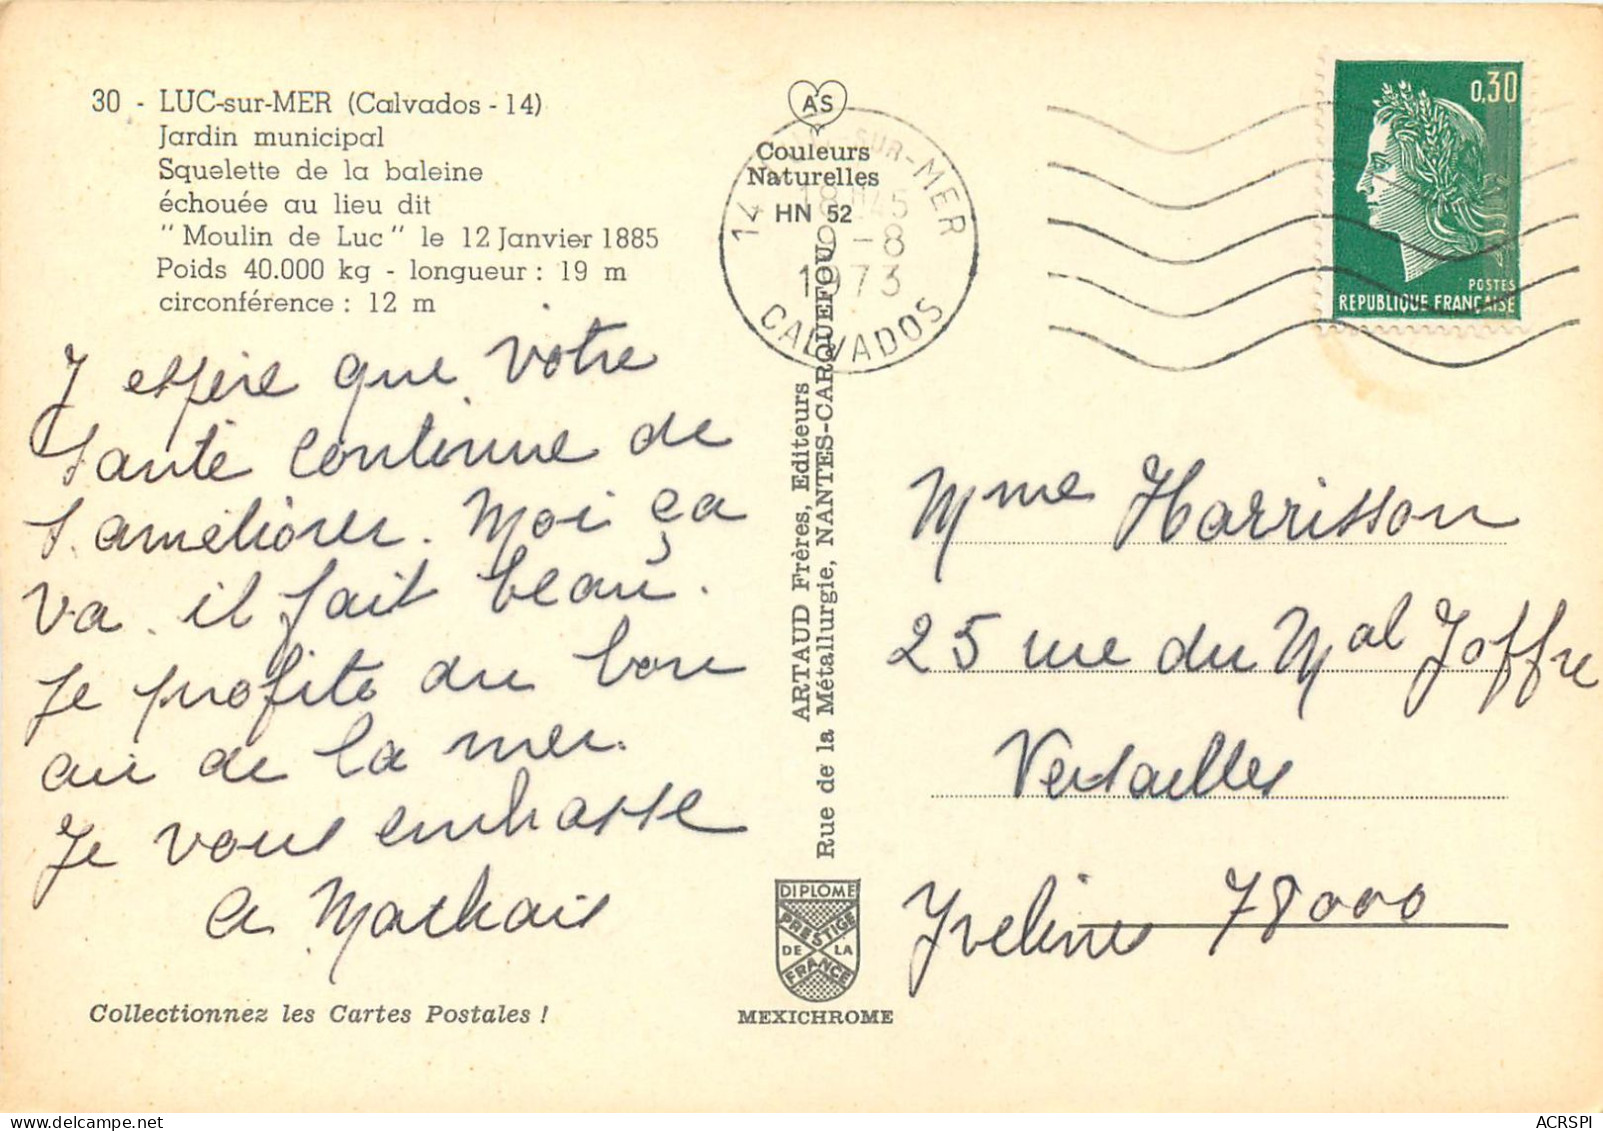 30 - LUC-sur-MER (Calvados - 14)
Jardin municipal
Squelette de la baleine
échouée au lieu dit
"Moulin de Luc" le 12 Janvier 1885
Poids 40.000 kg - longueur : 19 m
circonférence : 12 m
J espère que votre
santé continue de
s'améliorer. Moi ça
va. il fait beau.
Je profite du bon
air de la mer.
Je vous embrasse
Collectionnez les Cartes Postales !
AS
Couleurs
Naturelles
HN 52
14 -SUR-MER
18H45
-8
1973
CALVADOS
ARTAUD Frères, Editeurs
Rue de la Métallurgie, NANTES-CARQUEFOU
DIPLOME
PRESTIGE
DE LA
FRANCE
MEXICHROME
0,30
POSTES
REPUBLIQUE FRANÇAISE
Mme Harrisson
25 rue du Mal Joffre
Versailles
Yvelines 78000
ACRSPI